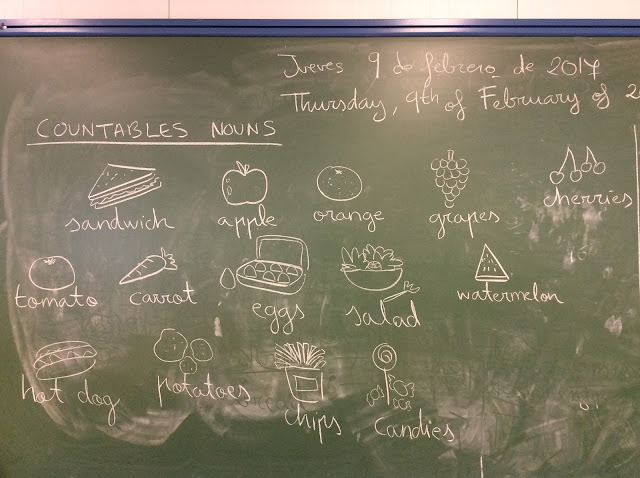 Jueves 9 de febrero de 2017
Thursday, 9th of February of 2
COUNTABLES NOUNS
sandwich apple orange grapes cherries
tomato carrot eggs salad watermelon
hot dog potatoes chips candies